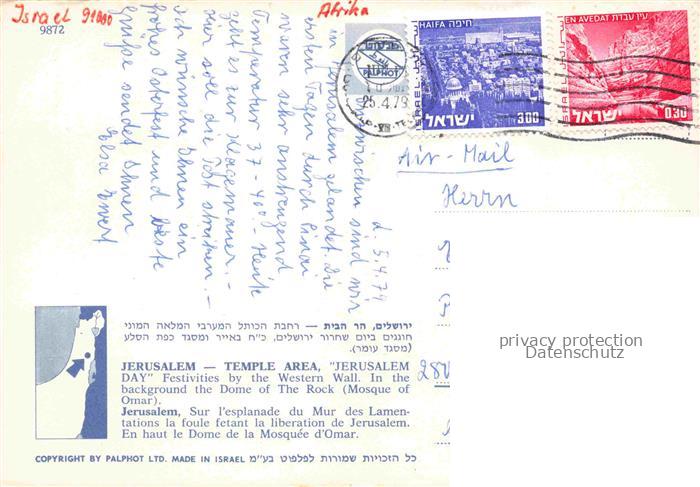 Israel 91000
Afrika
9872
PALPHOT
25.4.79
HAIFA חיפה
ISRAEL
ישראל
3.00
EN AVEDAT עין עבדת
ISRAEL
ישראל
0.30
Air-Mail
Herrn
d. 5.4.79
Inzwischen sind wir
in Jerusalem gelandet. Die
ersten Tagen durch Sinai
waren sehr anstrengend
Temperatur 37 - 40°. Heute
geht es zur Klagemauer. -
hier soll die Post streiken. -
ich wünsche Ihnen ein
frohes Osterfest und beste
Grüße sendet Ihnen
Elsa
280
ירושלים, הר הבית — רחבת הכותל המערבי המלאה המוני
חוגגים ביום שחרור ירושלים, כ״ח באייר ומסגד כפת הסלע
(מסגד עומר).
JERUSALEM — TEMPLE AREA, "JERUSALEM
DAY" Festivities by the Western Wall. In the
background the Dome of The Rock (Mosque of
Omar).
Jerusalem, Sur l'esplanade du Mur des Lamen-
tations la foule fetant la liberation de Jerusalem.
En haut le Dome de la Mosquée d'Omar.
COPYRIGHT BY PALPHOT LTD. MADE IN ISRAEL כל הזכויות שמורות לפלפוט בע״מ
privacy protection
Datenschutz